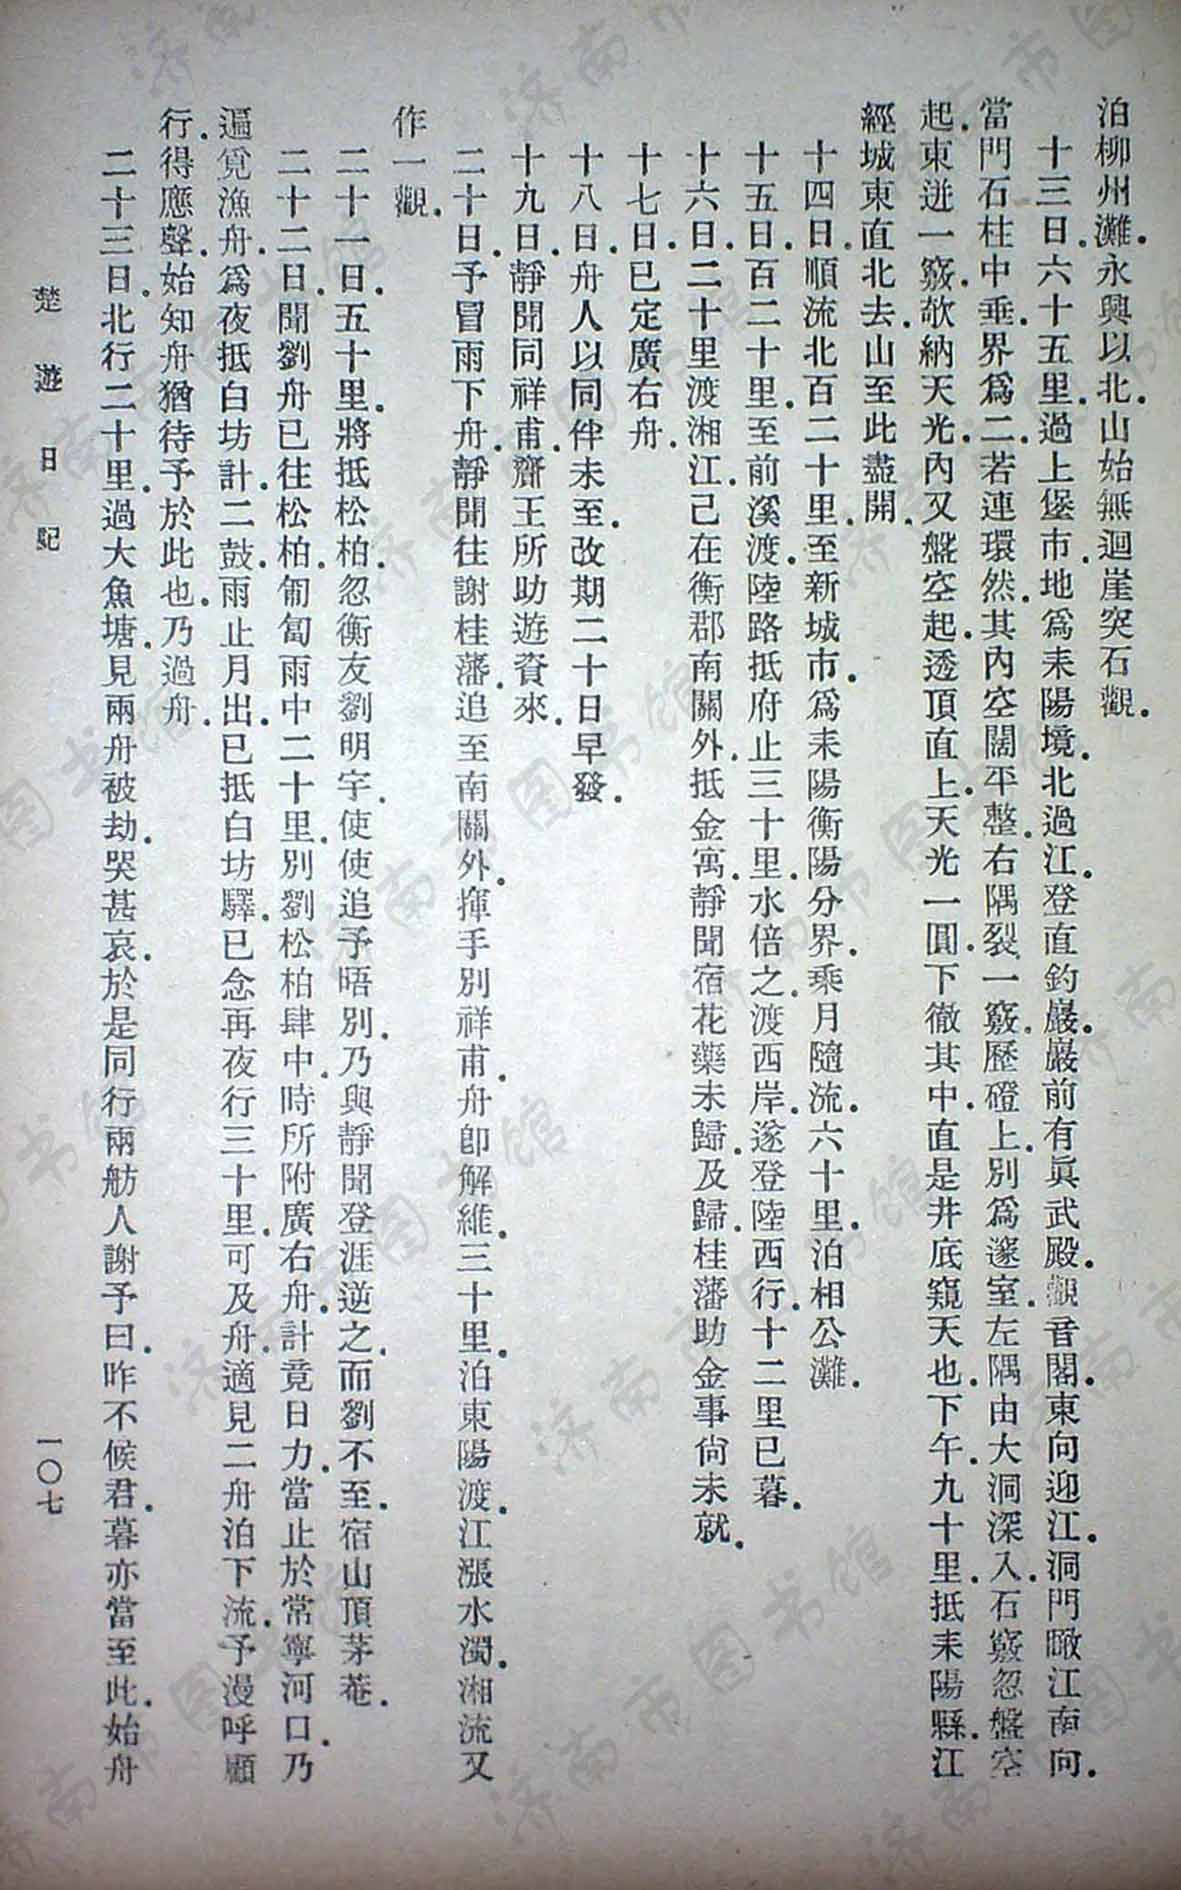 泊柳州灘．永興以北．山始無迴崖突石觀．
十三日．六十五里．過上堡市．地爲耒陽境．北過江．登直釣巖．巖前有眞武殿．觀音閣．東向迎江．洞門瞰江南向．
當門石柱中垂．界爲二．若連環然．其內空闊平整．右隅裂一竅．歷磴上．別爲邃室．左隅由大洞深入．石竅忽盤空
起．東迸一竅．欹納天光．內又盤空起．透頂直上．天光一圓．下徹其中．直是井底窺天也．下午．九十里．抵耒陽縣．江
經城東直北去．山至此盡開．
十四日．順流北百二十里．至新城市．爲耒陽衡陽分界．乘月隨流．六十里．泊相公灘．
十五日．百二十里．至前溪渡．陸路抵府止三十里．水倍之．渡西岸．遂登陸西行．十二里已暮．
十六日．二十里渡湘江．已在衡郡南關外．抵金寓．靜聞宿花藥未歸．及歸．桂藩助金事尙未就．
十七日．已定廣右舟．
十八日．舟人以同伴未至．改期二十日早發．
十九日．靜聞同祥甫．齎王所助遊資來．
二十日．予冒雨下舟．靜聞往謝桂藩．追至南關外．揮手別祥甫．舟卽解維．三十里．泊東陽渡．江漲水濁．湘流又
作一觀．
二十一日．五十里．將抵松柏．忽衡友劉明宇．使使追予晤別．乃與靜聞登涯逆之．而劉不至．宿山頂茅菴．
二十二日．聞劉舟已往松柏．匍匐雨中二十里．別劉松柏肆中．時所附廣右舟．計竟日力．當止於常寧河口．乃
遍覓漁舟．爲夜抵白坊計．二鼓．雨止月出．已抵白坊驛．已念再夜行三十里．可及舟．適見二舟泊下流．予漫呼顧
行．得應聲．始知舟猶待予於此也．乃過舟．
二十三日．北行二十里．過大魚塘．見兩舟被劫．哭甚哀．於是同行兩舫人謝予曰．昨不候君．暮亦當至此．始舟
楚遊日記
一〇七